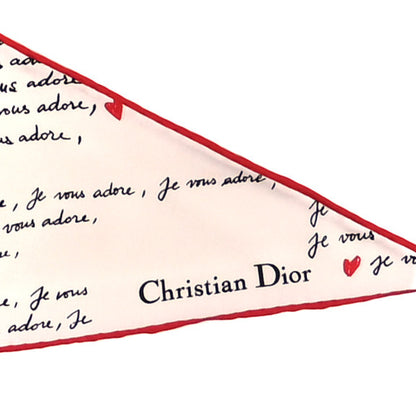 adore
us adore
vous adore,
us adore,
e, Je vous adore, Je vous adore,
vous adore,
e,
Je
Je vous
Je vo
Christian Dior
e, Je vous
adore, Je